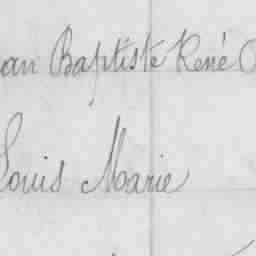 an Baptiste René
Louis Marie